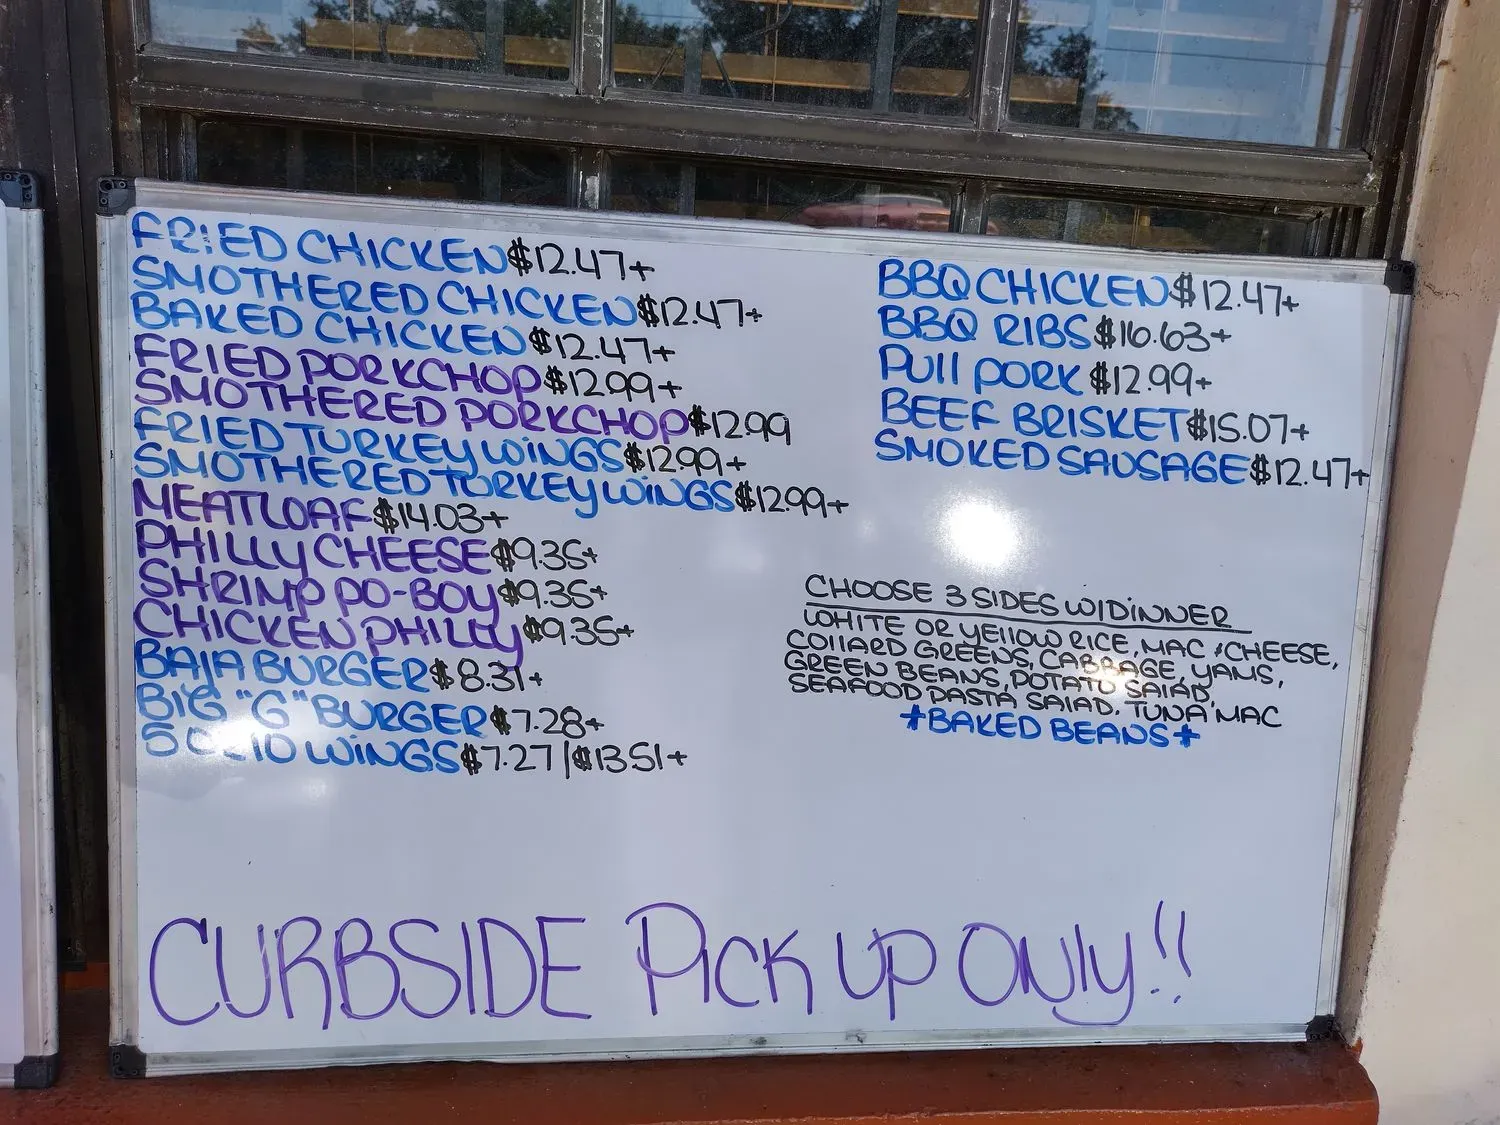 FRIED CHICKEN $12.47+
SMOTHERED CHICKEN $12.47+
BAKED CHICKEN $12.47+
FRIED PORKCHOP $12.99+
SMOTHERED PORKCHOP $12.99
FRIED TURKEY WINGS $12.99+
SMOTHERED TURKEY WINGS $12.99+
MEATLOAF $14.03+
PHILLY CHEESE $9.35+
SHRIMP PO-BOY $9.35+
CHICKEN PHILLY $9.35+
BAJA BURGER $8.31+
BIG "G" BURGER $7.28+
WINGS $7.27/$13.51+
BBQ CHICKEN $12.47+
BBQ RIBS $16.63+
PUll PORK $12.99+
BEEF BRISKET $15.07+
SMOKED SAUSAGE $12.47+
CHOOSE 3 SIDES W/DINNER
WHITE OR YEllOW RICE, MAC & CHEESE,
COllARD GREENS, CABBAGE, YAMS,
GREEN BEANS, POTATO SAlAD,
SEAFOOD PASTA SAlAD, TUNA MAC
*BAKED BEANS*
CURBSIDE PICK UP ONly!!